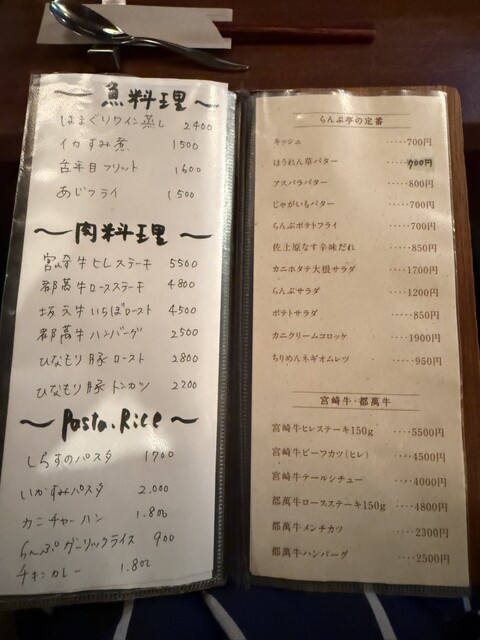 ～ 魚料理 ～
はまぐりワイン蒸し 2400
イカすみ煮 1500
舌平目フリット 1600
あじフライ 1500
～ 肉料理 ～
宮崎牛ヒレステーキ 5500
都萬牛ロースステーキ 4800
坂元牛いちぼロースト 4500
都萬牛ハンバーグ 2500
ひなもり豚ロースト 2800
ひなもり豚トンカツ 2200
～ Pasta.Rice ～
しらすのパスタ 1700
いかすみパスタ 2.000
カニチャーハン 1.800
らんぷガーリックライス 900
チキンカレー 1.800
らんぷ亭の定番
キッシュ ‥‥‥700円
ほうれん草バター ‥‥‥700円
アスパラバター ‥‥‥800円
じゃがいもバター ‥‥‥700円
らんぷポテトフライ ‥‥‥700円
佐土原なす辛味だれ ‥‥‥850円
カニホタテ大根サラダ ‥‥1700円
らんぷサラダ ‥‥1200円
ポテトサラダ ‥‥‥850円
カニクリームコロッケ ‥‥1900円
ちりめんネギオムレツ ‥‥‥950円
宮崎牛・都萬牛
宮崎牛ヒレステーキ150g ‥‥5500円
宮崎牛ビーフカツ(ヒレ) ‥‥4500円
宮崎牛テールシチュー ‥‥4000円
都萬牛ロースステーキ150g ‥‥4800円
都萬牛メンチカツ ‥‥2300円
都萬牛ハンバーグ ‥‥2500円